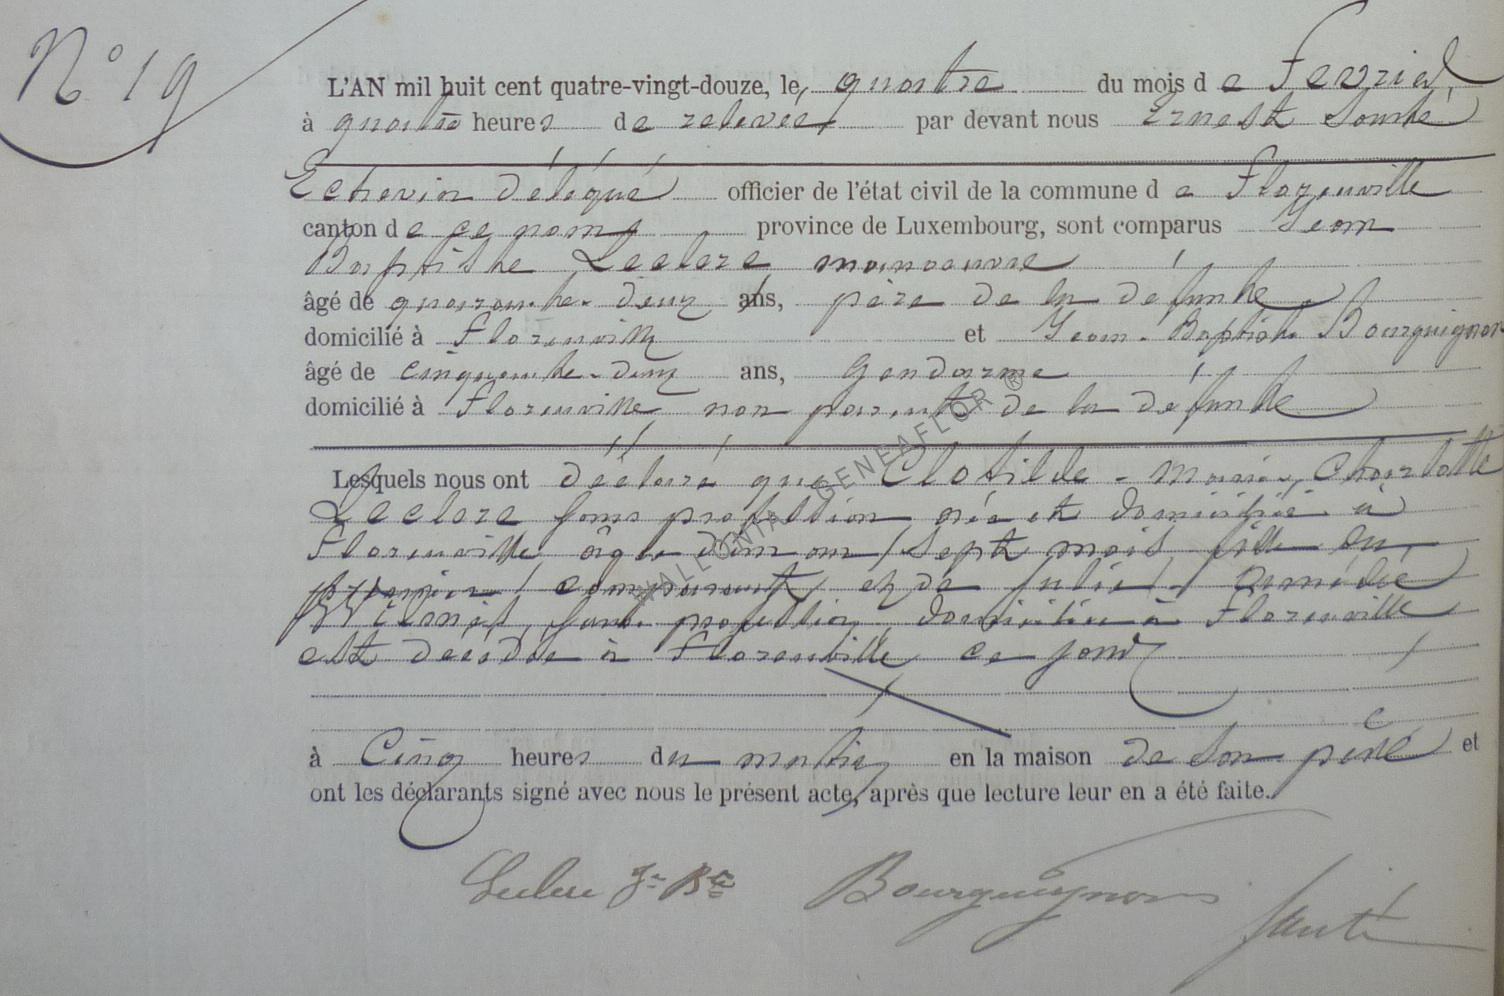 N° 19
L'AN mil huit cent quatre-vingt-douze, le quatre du mois de Fevrier
à quatre heures de relevée par devant nous Ernest
Echevin délégué officier de l'état civil de la commune de Florenville
canton de ce nom province de Luxembourg, sont comparus Jean
Baptiste Leclere manoeuvre
âgé de quarante-deux ans, père de la defunte
domicilié à Florenville et Jean-Baptiste Bourguignon
âgé de cinquante-deux ans, Gendarme
domicilié à Florenville non parent de la défunte
WALLONIA GENEAFLOR ®
Lesquels nous ont déclaré que Clotilde-Marie, Charlotte
Leclere sans profession née et domiciliée à
Florenville âgée d'un an, sept mois fille du
premier comparant, et de Julie
sans profession domiciliée à Florenville
est decedee à Florenville ce jour
à Cinq heures du matin en la maison de son père et
ont les déclarants signé avec nous le présent acte, après que lecture leur en a été faite.
Leclere Jn Bte Bourguignon